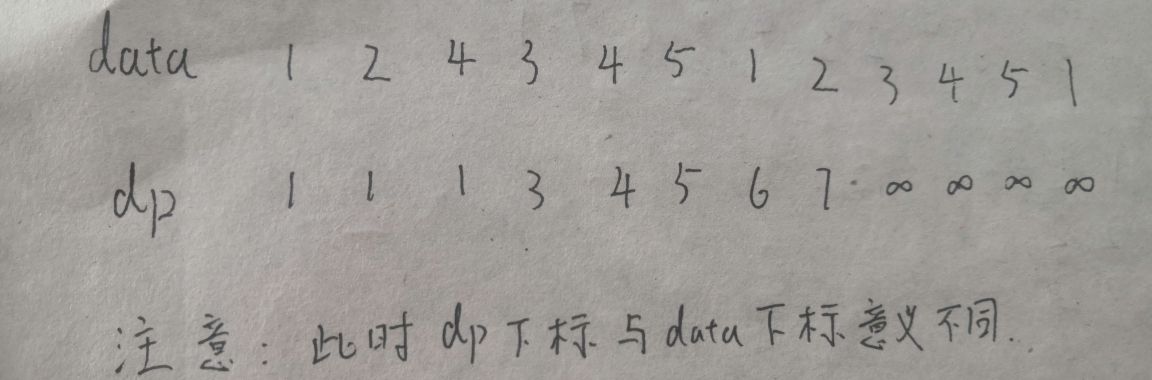 data 1 2 4 3 4 5 1 2 3 4 5 1
dp 1 1 1 3 4 5 6 7 ∞ ∞ ∞ ∞
注意：此时dp下标与data下标意义不同.